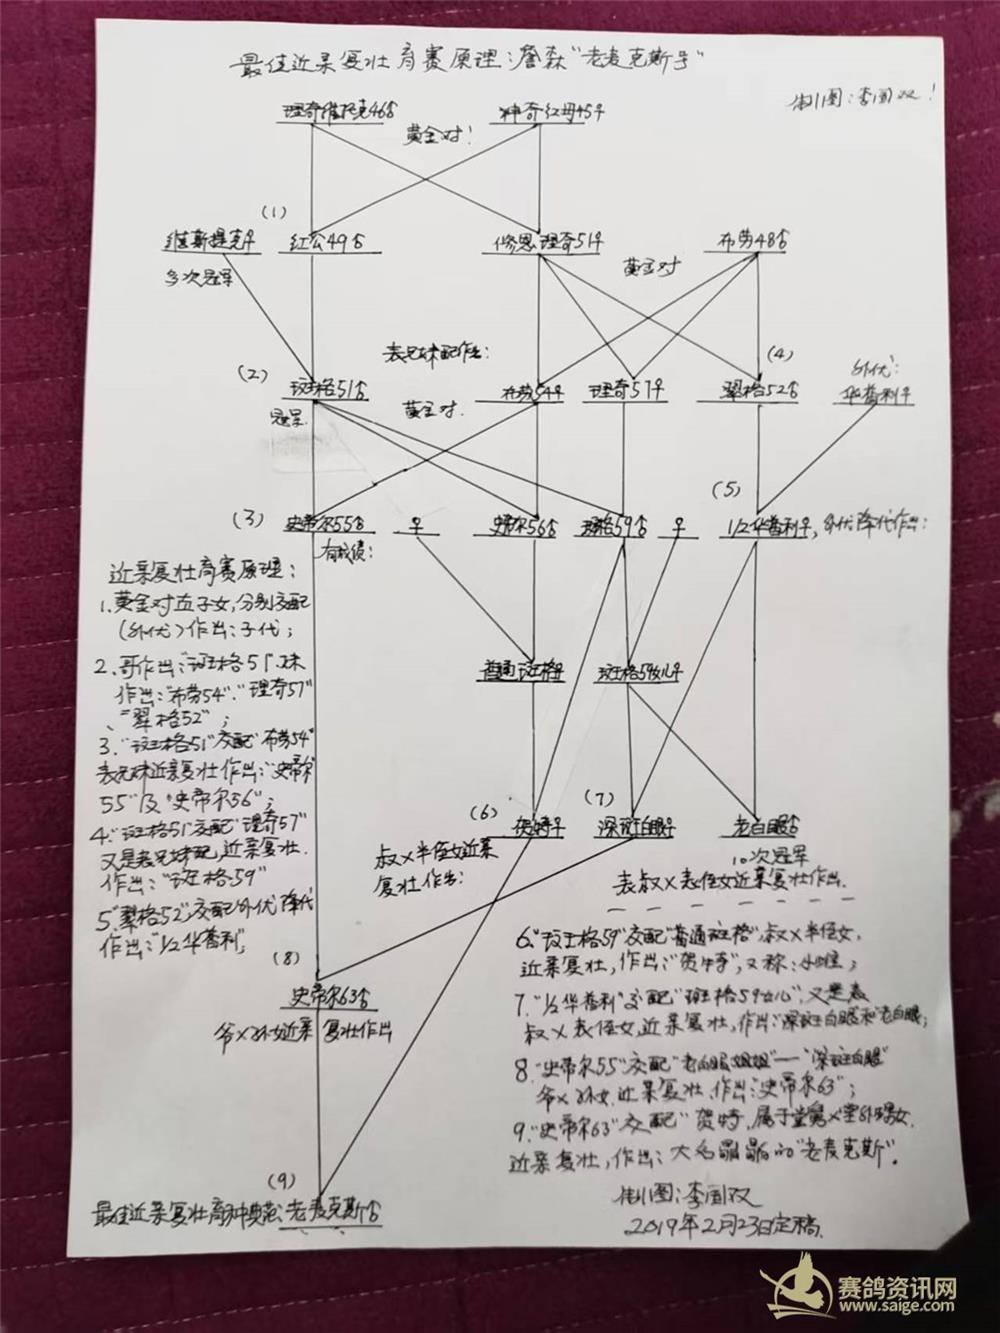 最佳近亲复壮育赛原理:詹森"老麦克斯号"
制图:李国双!
理奇维托克46♂ 神奇红母45♀
黄金对!
(1)
维斯提克♀ 红公49♂ 修恩理奇51♀ 布劳48♂
多次冠军 黄金对
表兄妹配作出:
(2) (4)
外优:
斑格51♂ 布劳54♀ 理奇57♀ 翠格52♂ 华普利♀
冠军 黄金对.
(3) (5)
史蒂尔55♂ ♀ 史蒂尔56♂ 斑格59♂ ♀ 1/2华普利♀,外优降代作出:
有成绩:
近亲复壮育赛原理:
1.黄金对直子女,分别交配
(外优)作出:子代;
2.哥作出:"斑格51".妹
作出:"布劳54"."理奇57"
、"翠格52";
3."斑格51"交配"布劳54"
表兄妹近亲复壮作出:"史蒂尔
55"及"史蒂尔56";
4."斑格51"交配"理奇57"
又是表兄妹配,近亲复壮.
作出:"斑格59"
5"翠格52",交配外优降代
作出:"1/2华普利";
普通斑格♀ 斑格59女儿♀
(6) (7)
贺特♀ 深斑白眼♀ 老白眼♂
10次冠军
叔×半侄女近亲
复壮作出:
表叔×表侄女近亲复壮作出.
6."斑格59"交配"普通斑格",叔×半侄女,
近亲复壮,作出:"贺特",又称:小雌;
7."1/2华普利"交配"斑格59女儿",又是表
叔×表侄女,近亲复壮,作出:"深斑白眼和老白眼;
8."史蒂尔55"交配"老白眼姐姐"—"深斑白眼"
爷×孙女.近亲复壮.作出:"史蒂尔63";
9."史蒂尔63"交配"贺特,属于堂舅×堂外甥女.
近亲复壮,作出:大名鼎鼎的"老麦克斯".
(8)
史蒂尔63♂
爷×孙女近亲复壮作出
(9)
最佳近亲复壮育种典范:老麦克斯♂
制图:李国双
2019年2月23日定稿.
赛鸽资讯网
www.saige.com